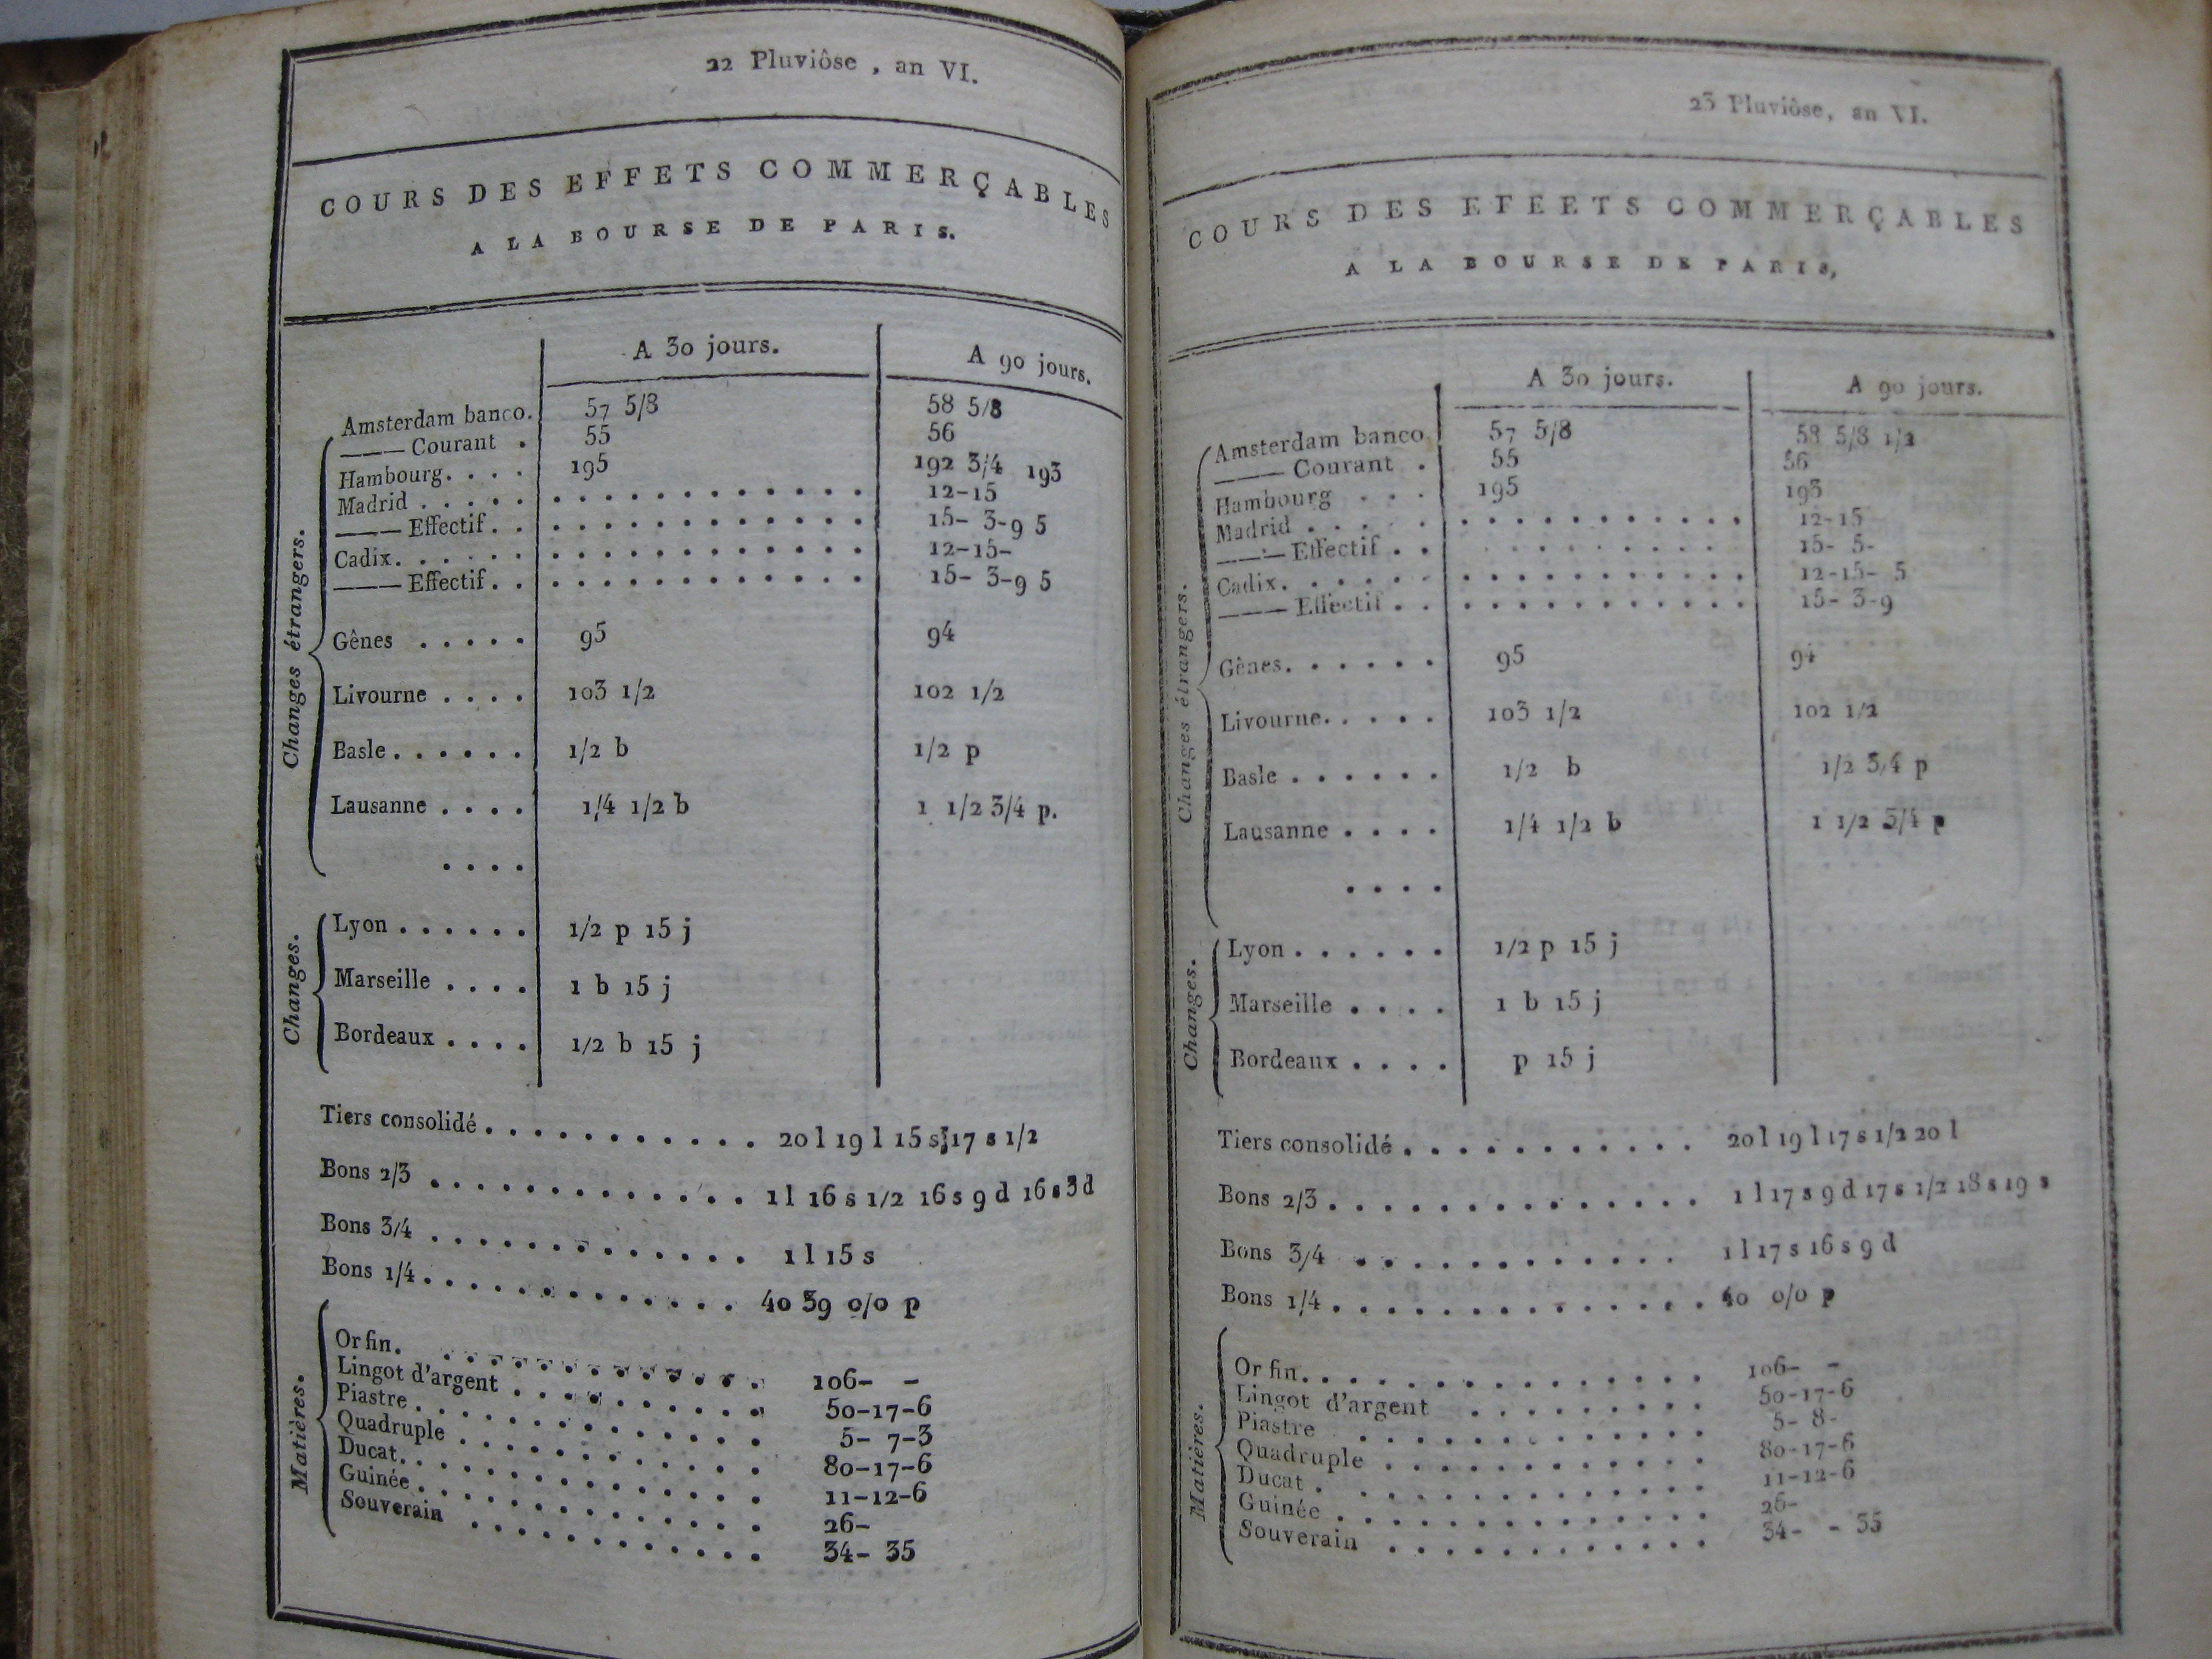 22 Pluviôse , an VI.
COURS DES EFFETS COMMERÇABLES
A LA BOURSE DE PARIS.
A 30 jours. A 90 jours.
Changes étrangers.
Amsterdam banco. 57 5/8 58 5/8
——— Courant . 55 56
Hambourg. . . . 195 192 3/4 193
Madrid . . . . . . . . . . . . . . . . . 12-15
——— Effectif. . . . . . . . . . . . . . 15- 3-9 5
Cadix. . . . . . . . . . . . . . . . . . 12-15-
——— Effectif. . . . . . . . . . . . . . 15- 3-9 5
Gênes . . . . . 95 94
Livourne . . . . 103 1/2 102 1/2
Basle . . . . . . 1/2 b 1/2 p
Lausanne . . . . 1/4 1/2 b 1 1/2 3/4 p.
. . . .
Changes.
Lyon . . . . . . 1/2 p 15 j
Marseille . . . . 1 b 15 j
Bordeaux . . . . 1/2 b 15 j
Tiers consolidé . . . . . . . . . . . 20 l 19 l 15 s 17 s 1/2
Bons 2/3 . . . . . . . . . . . . . 1 l 16 s 1/2 16 s 9 d 16 s 3 d
Bons 3/4 . . . . . . . . . . . . . 1 l 15 s
Bons 1/4 . . . . . . . . . . . . . 40 39 0/0 p
Matières.
Or fin. . . . . . . . . . . . . . . 106- -
Lingot d'argent . . . . . . . . . . . 50-17-6
Piastre . . . . . . . . . . . . . . 5- 7-3
Quadruple . . . . . . . . . . . . . 80-17-6
Ducat. . . . . . . . . . . . . . . 11-12-6
Guinée . . . . . . . . . . . . . . 26-
Souverain . . . . . . . . . . . . 34- 35
23 Pluviôse, an VI.
COURS DES EFEETS COMMERÇABLES
A LA BOURSE DE PARIS,
A 30 jours. A 90 jours.
Changes étrangers.
Amsterdam banco 57 5/8 58 5/8 1/2
——— Courant . 55 56
Hambourg . . . 195 193
Madrid . . . . . . . . . . . . . . . . 12-15
——— Effectif . . . . . . . . . . . . 15- 5-
Cadix. . . . . . . . . . . . . . . . . 12-15- 5
——— Effectif . . . . . . . . . . . . . 15- 3-9
Gênes. . . . . . 95 94
Livourne. . . . . 103 1/2 102 1/2
Basle . . . . . . 1/2 b 1/2 3/4 p
Lausanne . . . . 1/4 1/2 b 1 1/2 3/4 p
. . . .
Changes.
Lyon . . . . . . 1/2 p 15 j
Marseille . . . . 1 b 15 j
Bordeaux . . . . p 15 j
Tiers consolidé . . . . . . . . . . . 20 l 19 l 17 s 1/2 20 l
Bons 2/3 . . . . . . . . . . . . . . 1 l 17 s 9 d 17 s 1/2 18 s 19 s
Bons 3/4 . . . . . . . . . . . . 1 l 17 s 16 s 9 d
Bons 1/4 . . . . . . . . . . . . . . 40 0/0 p
Matières.
Or fin. . . . . . . . . . . . . . . . 106- -
Lingot d'argent . . . . . . . . . 50-17-6
Piastre . . . . . . . . . . . . . . 5- 8-
Quadruple . . . . . . . . . . . . 80-17-6
Ducat . . . . . . . . . . . . . . 11-12-6
Guinée . . . . . . . . . . . . . . 26-
Souverain . . . . . . . . . . . . 34- - 35